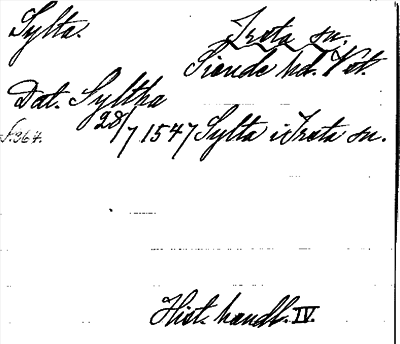 Sylta.
Irsta sn.
Siende hd. Vst.
Dat. Syltha
28/7 1547 Sylta i Irsta sn.
s. 364.
Hist. handl. IV.